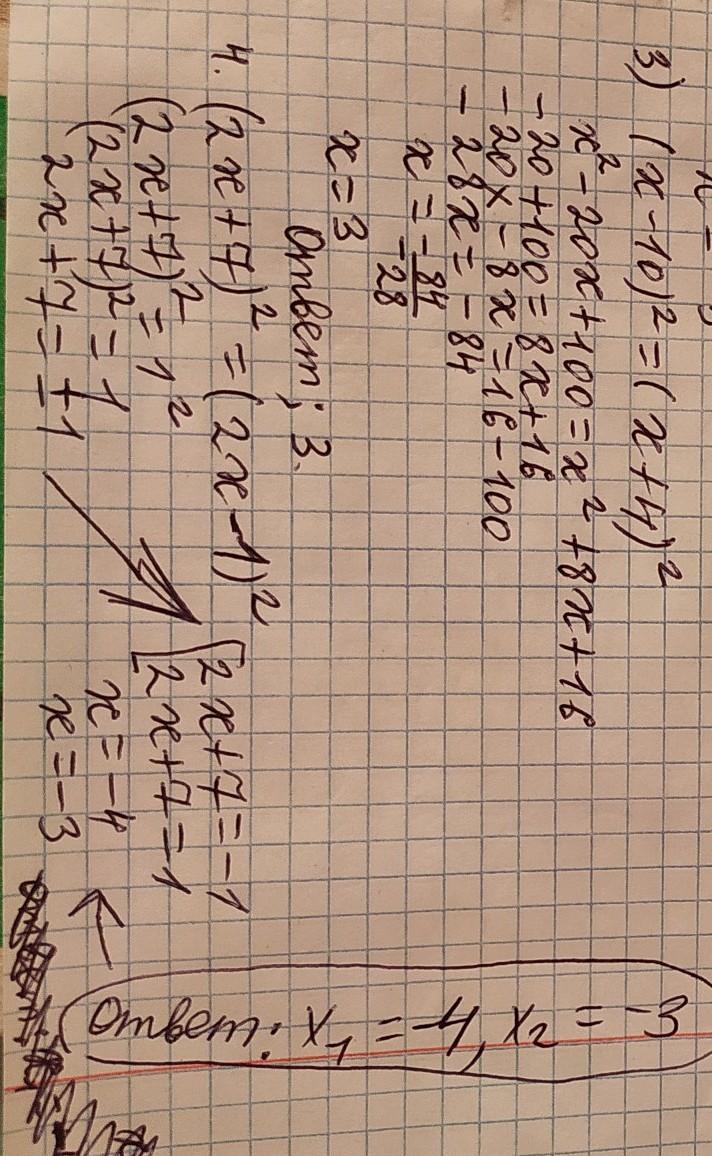 3) (x-10)² = (x+4)²
x² - 20x + 100 = x² + 8x + 16
-20 + 100 = 8x + 16
-20x - 8x = 16 - 100
-28x = -84
x = -84/-28
x = 3
Ответ; 3.
4. (2x+7)² = (2x-1)²
(2x+7)² = 1²
(2x+7)² = 1
2x+7 = ±1
[2x+7 = -1
[2x+7 = 1
x = -4
x = -3
Ответ: x₁ = -4, x₂ = -3